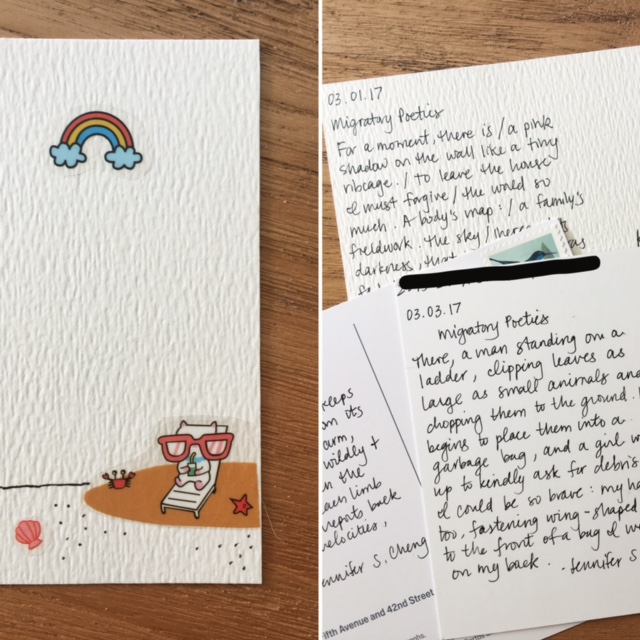 03.01.17
Migratory Poetics
For a moment, there is / a pink
shadow on the wall like a tiny
ribcage: / to leave the house
I must forgive / the world so
much. A body's map: / a family's
fieldwork. The sky /
darkness, that as
03.03.17
Migratory Poetics
There, a man standing on a
ladder, clipping leaves as
large as small animals and
chopping them to the ground.
begins to place them into a
garbage bag, and a girl
up to kindly ask for debris
I could be so brave: my
too, fastening wing-shaped
to the front of a bug I
on my back. . Jennifer S
keeps
on its
arm,
wildly +
the
each limb
back
velocities,
Jennifer S. Cheng
Fifth Avenue and 42nd Street